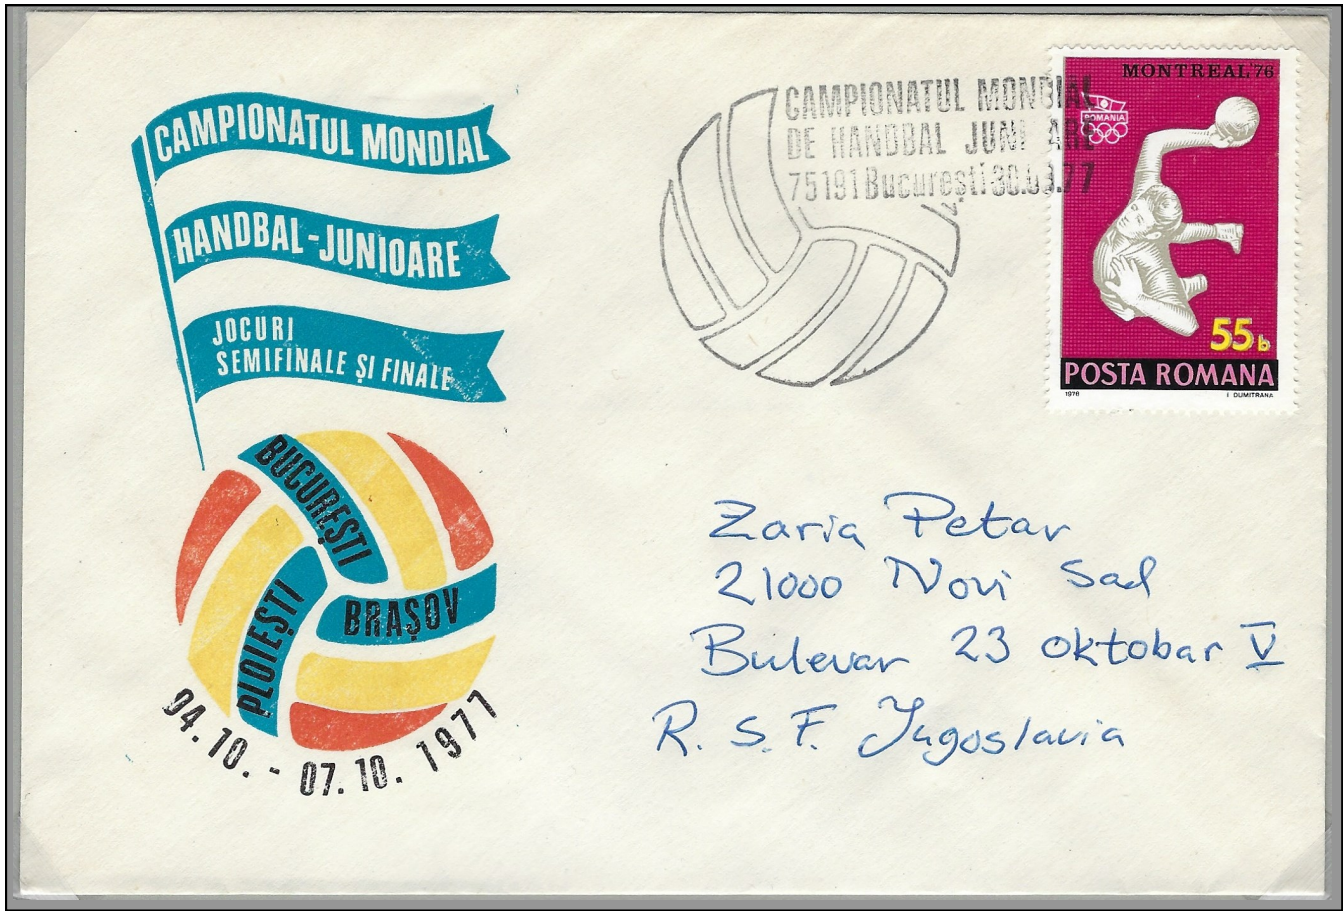 CAMPIONATUL MONDIAL
HANDBAL-JUNIOARE
JOCURI
SEMIFINALE ȘI FINALE
BUCUREȘTI
PLOIEȘTI
BRAȘOV
04.10. - 07.10. 1977
CAMPIONATUL MONDIAL
DE HANDBAL JUNI ARE
75191 București
MONTREAL'76
ROMANIA
55b
POSTA ROMANA
1976 I DUMITRANA
Zaria Petar
21000 Novi Sad
Bulevar 23 oktobar V
R. S. F. Jugoslavia